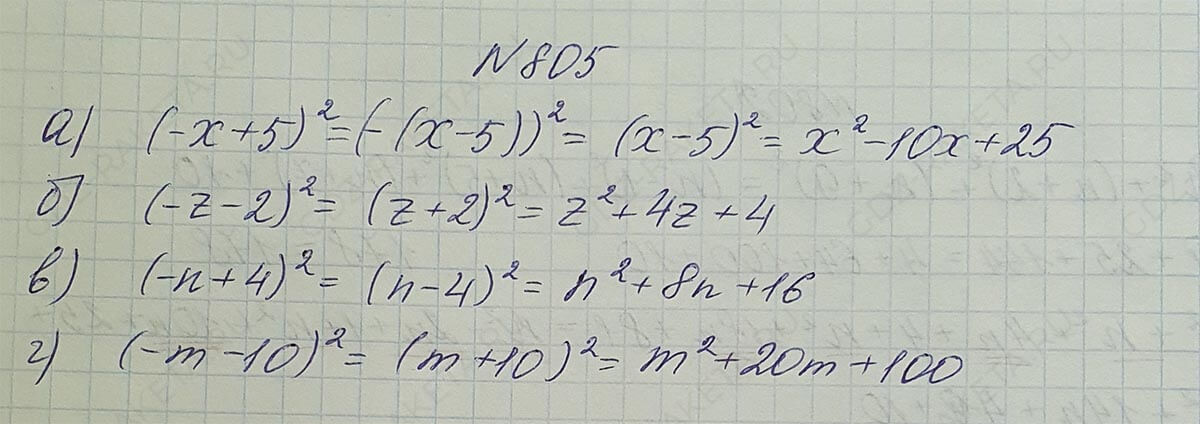 N 805
а) (-x+5)² = (-(x-5))² = (x-5)² = x²-10x+25
б) (-z-2)² = (z+2)² = z²+4z+4
в) (-n+4)² = (n-4)² = n²+8n+16
г) (-m-10)² = (m+10)² = m²+20m+100